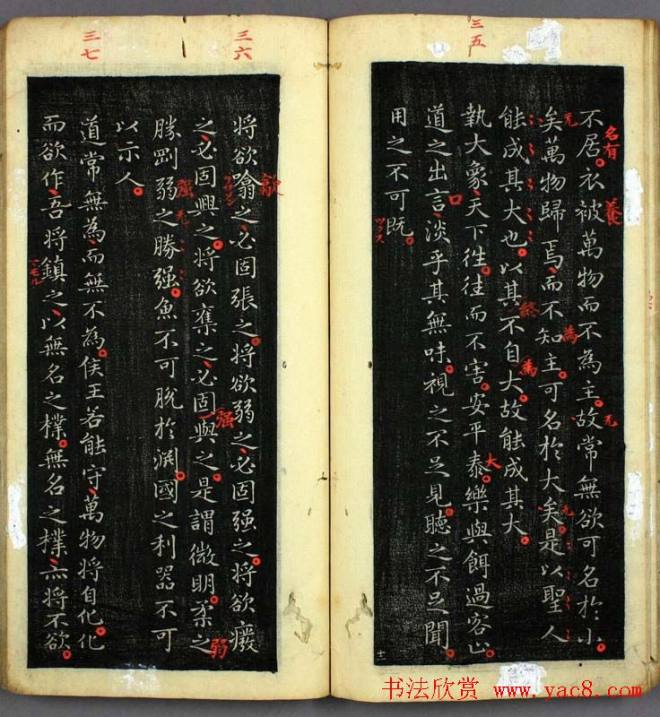 三五
不居衣被萬物而不為主故常無欲可名於小
矣萬物歸焉而不知主可名於大矣是以聖人
能成其大也以其不自大故能成其大
執大象天下徃徃而不害安平泰樂與餌過客止
道之出言淡乎其無味視之不足見聽之不足聞
用之不可既
三六
將欲噏之必固張之將欲弱之必固强之將欲癈
之必固興之將欲奪之必固與之是謂微明柔之
勝剛弱之勝强魚不可脫於淵國之利器不可
以示人
三七
道常無為而無不為侯王若能守萬物將自化化
而欲作吾將鎮之以無名之樸無名之樸亦將不欲
名有
養
終
為
萬
大
口
强
弱
书法欣赏 www.yac8.com